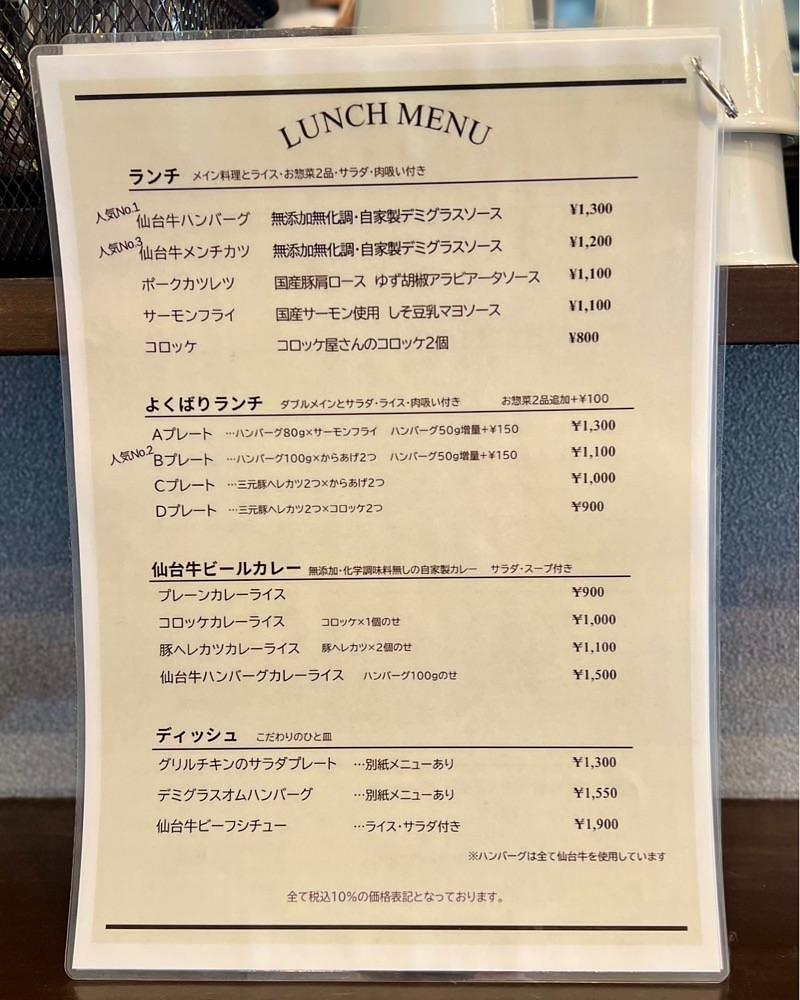 LUNCH MENU
ランチ メイン料理とライス・お惣菜2品・サラダ・肉吸い付き
人気No.1 仙台牛ハンバーグ 無添加無化調・自家製デミグラスソース ¥1,300
人気No.3 仙台牛メンチカツ 無添加無化調・自家製デミグラスソース ¥1,200
ポークカツレツ 国産豚肩ロース ゆず胡椒アラビアータソース ¥1,100
サーモンフライ 国産サーモン使用 しそ豆乳マヨソース ¥1,100
コロッケ コロッケ屋さんのコロッケ2個 ¥800
よくばりランチ ダブルメインとサラダ・ライス・肉吸い付き お惣菜2品追加+¥100
Aプレート …ハンバーグ80g×サーモンフライ ハンバーグ50g増量+¥150 ¥1,300
人気No.2 Bプレート …ハンバーグ100g×からあげ2つ ハンバーグ50g増量+¥150 ¥1,100
Cプレート …三元豚ヘレカツ2つ×からあげ2つ ¥1,000
Dプレート …三元豚ヘレカツ2つ×コロッケ2つ ¥900
仙台牛ビールカレー 無添加・化学調味料無しの自家製カレー サラダ・スープ付き
プレーンカレーライス ¥900
コロッケカレーライス コロッケ×1個のせ ¥1,000
豚ヘレカツカレーライス 豚ヘレカツ×2個のせ ¥1,100
仙台牛ハンバーグカレーライス ハンバーグ100gのせ ¥1,500
ディッシュ こだわりのひと皿
グリルチキンのサラダプレート …別紙メニューあり ¥1,300
デミグラスオムハンバーグ …別紙メニューあり ¥1,550
仙台牛ビーフシチュー …ライス・サラダ付き ¥1,900
※ハンバーグは全て仙台牛を使用しています
全て税込10%の価格表記となっております。